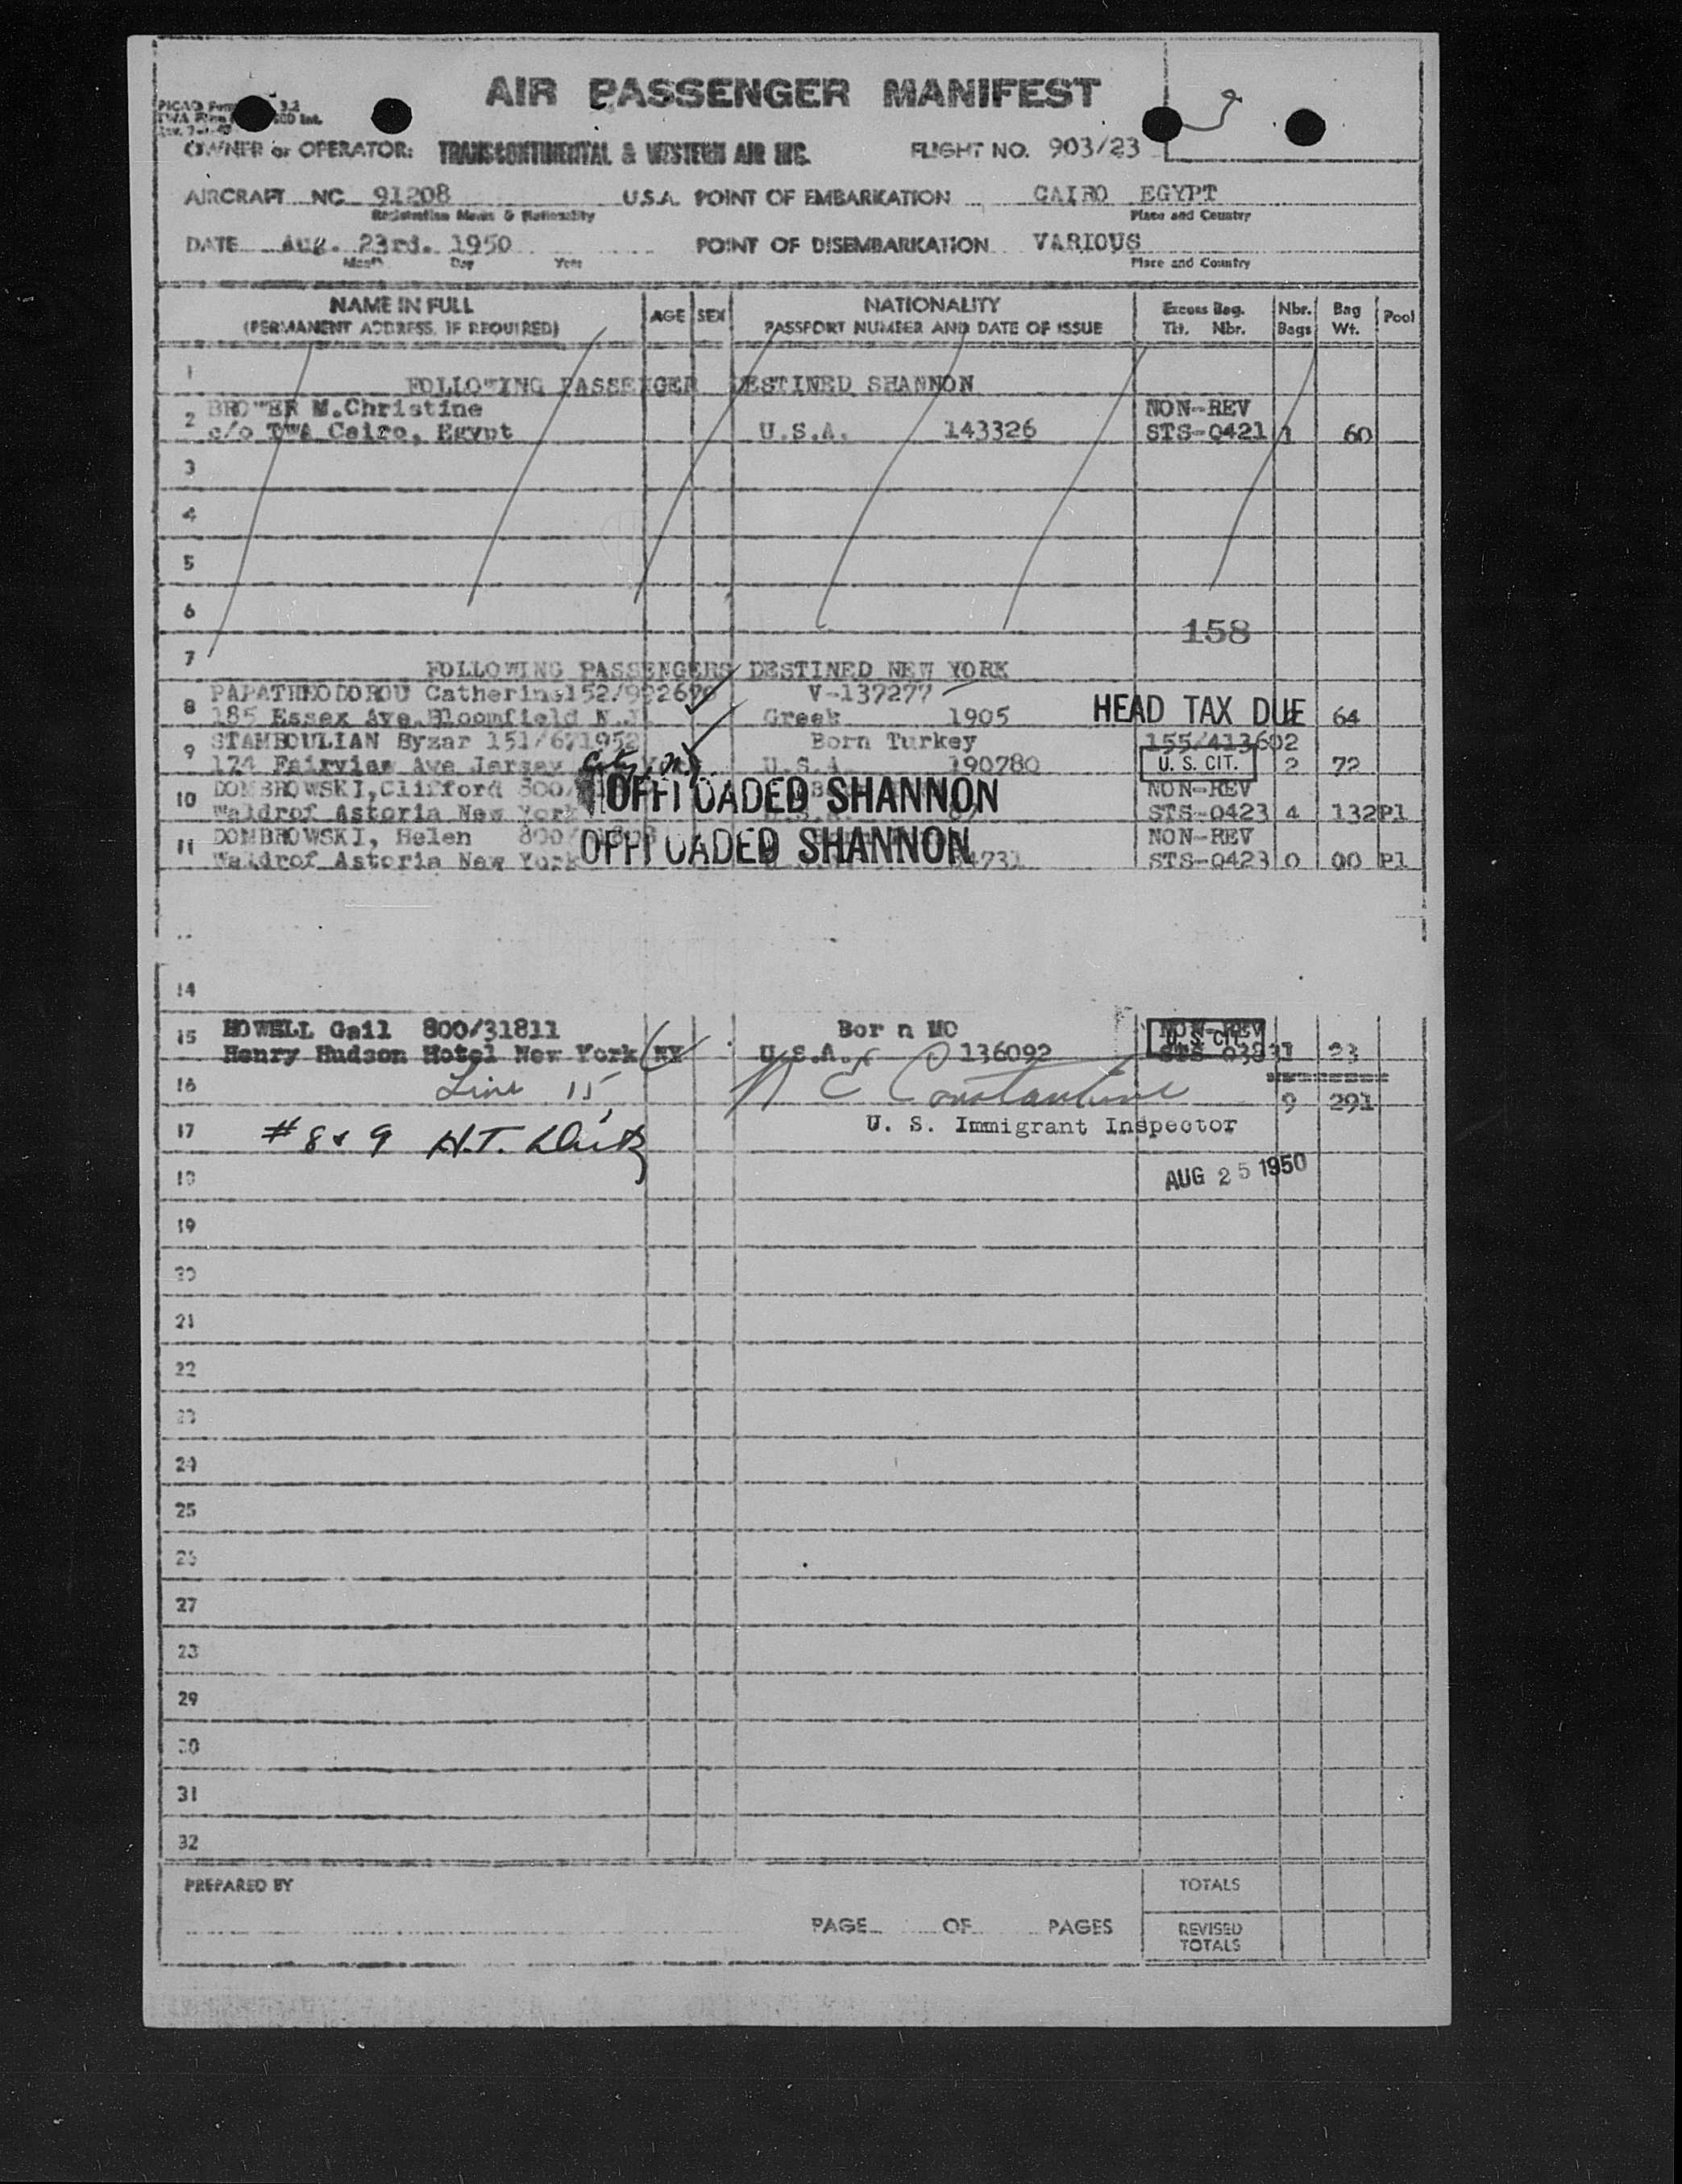 AIR PASSENGER MANIFEST
OWNER or OPERATOR: TRANSCONTINENTAL & WESTERN AIR INC. FLIGHT NO. 903/23
AIRCRAFT NC 91208 U.S.A. POINT OF EMBARKATION CAIRO EGYPT
Registration Marks & Nationality Place and Country
DATE Aug. 23rd. 1950 POINT OF DISEMBARKATION VARIOUS
Month Day Year Place and Country
NAME IN FULL AGE SEX NATIONALITY Excess Bag. Nbr. Bag Pool
(PERMANENT ADDRESS, IF REQUIRED) PASSPORT NUMBER AND DATE OF ISSUE Tkt. Nbr. Bags Wt.
1 FOLLOWING PASSENGER DESTINED SHANNON
BROWER M.Christine NON-REV
2 c/o TWA Cairo, Egypt U.S.A. 143326 STS-0421 1 60
3
4
5
6
158
7 FOLLOWING PASSENGERS DESTINED NEW YORK
PAPATHEODOROU Catherine V-137277
8 185 Essex Ave. Bloomfield N.J. Greek 1905 HEAD TAX DUE 64
STAMBOULIAN Byzar 151/671952 Born Turkey 155/413602
9 174 Fairview Ave Jersey City, NJ U.S.A. 190780 U. S. CIT. 2 72
DOMBROWSKI,Clifford 800/ OFFLOADED SHANNON NON-REV
10 Waldrof Astoria New York STS-0423 4 132 Pl
DOMBROWSKI, Helen 800/ OFFLOADED SHANNON NON-REV
11 Waldrof Astoria New York STS-0423 0 00 Pl
14
15 HOWELL Gail 800/31811 Bor n MO NON-REV U. S. CIT.
Henry Hudson Hotel New York NY U.S.A. 136092 1 23
========
16 Line 15, N C Constantine 9 291
17 U. S. Immigrant Inspector
# 8 & 9 H.T.
AUG 25 1950
18
19
20
21
22
23
24
25
26
27
28
29
30
31
32
PREPARED BY TOTALS
PAGE OF PAGES REVISED
TOTALS